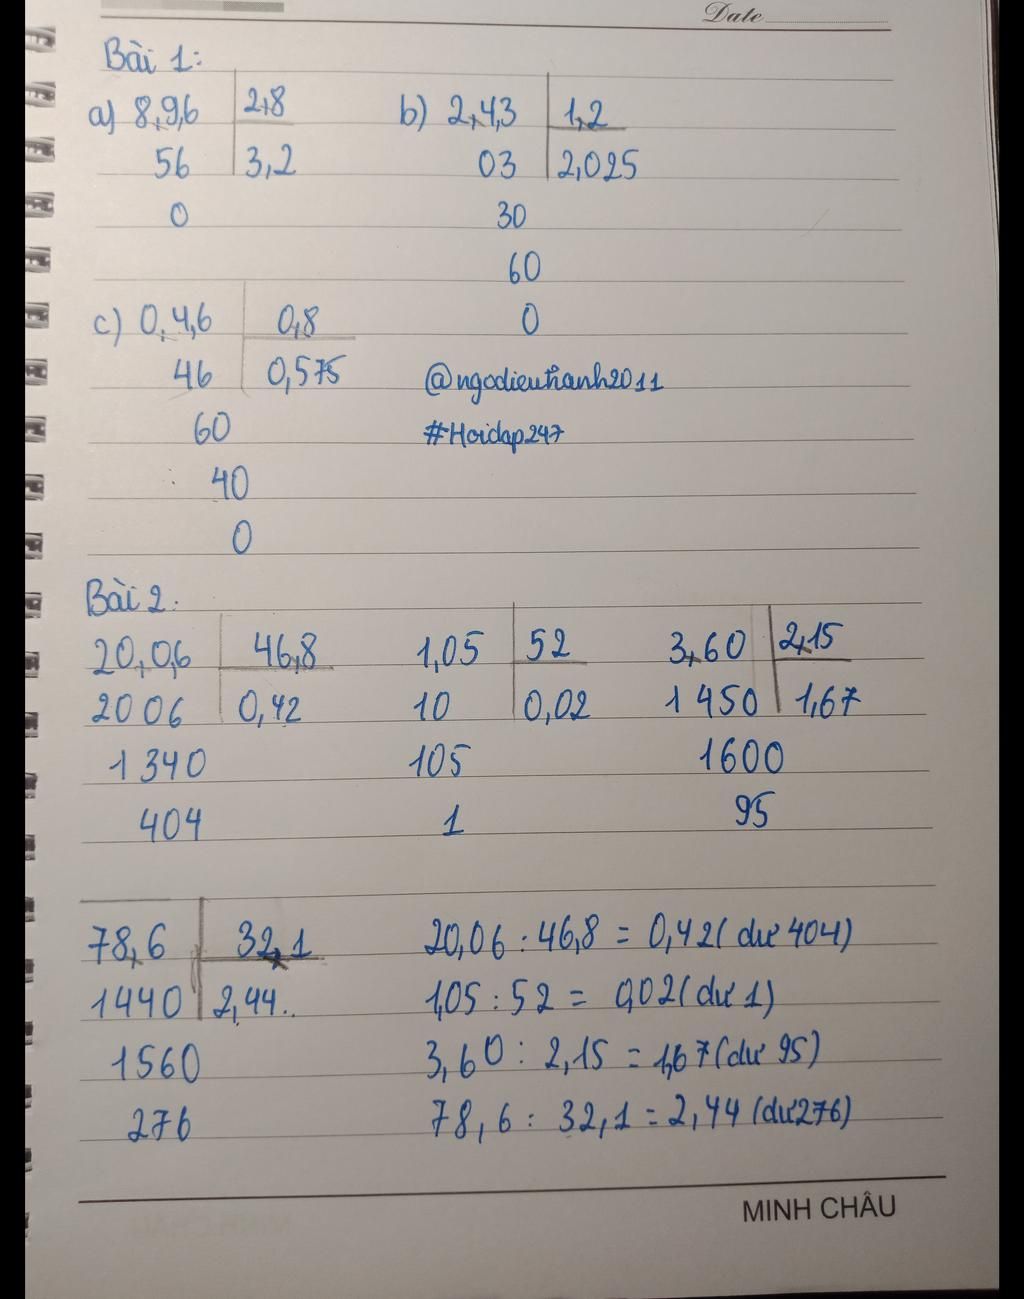 Date
Bài 1:
a) 8,9,6 2,8 b) 2,4,3 1,2
56 3,2 03 2,025
0 30
60
c) 0,4,6 0,8 0
46 0,575 @ngodieuthanh2011
60 #Hoidap247
40
0
Bài 2.
20,0,6 46,8 1,05 52 3,60 2,15
2006 0,42 10 0,02 1450 1,67
1340 105 1600
404 1 95
78,6 32,1 20,06 : 46,8 = 0,42 (dư 404)
1440 2,44.. 1,05 : 52 = 0,02 (dư 1)
1560 3,60 : 2,15 = 1,67 (dư 95)
276 78,6 : 32,1 = 2,44 (dư 276)
MINH CHÂU